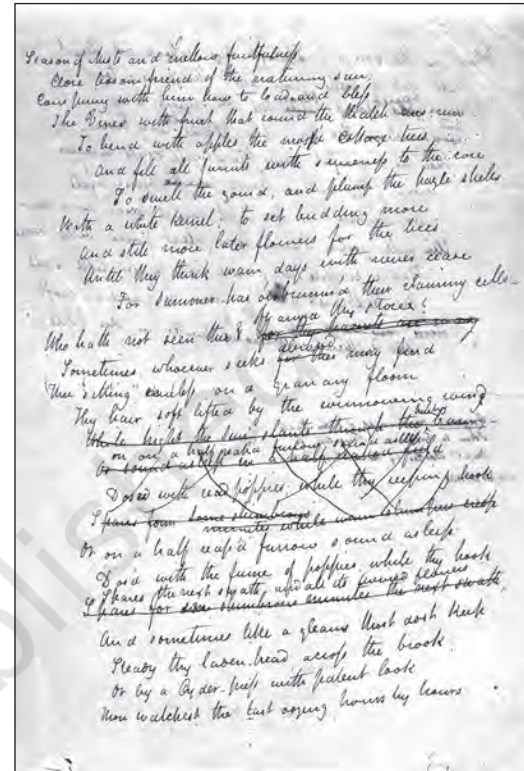 Season of Mists and mellow fruitfulness
Close bosom friend of the maturing sun;
Conspiring with him how to load and bless
The Vines with fruit that round the thatch eves run
To bend with apples the moss'd cottage trees
And fill all fruits with sweeness to the core
To swell the gourd, and plump the hazle shells
With a white kernel; to set budding more
And still more later flowers for the bees
Until they think warm days with never cease
For Summer has o'erbrimm'd their clammy cells—
oft amid thy stores?
Who hath not seen thee? for thy haunts are many
abroad
Sometimes whoever seeks for thee may find
Thee sitting careless on a granary floor
Thy hair soft lifted by the winnowing wind
While bright the Sun slants through the barn
on on a half reap'd furrow sound asleep
Or sound asleep in a half reaped field
Dosed with red poppies; while thy reeping hook
Spares form some slumbrous
minutes while warm slumpers creep
Or on a half reap'd furrow sound asleep
Dos'd with the fume of poppies, while thy hook
Spares the next swath and all its twined flowers
Spares for some slumbrous minutes the next swath;
And sometimes like a gleans thost dost keep
Steady thy laden head across the brook;
Or by a Cyder-press with patent look
Thou watchest the last oozing hours by hours